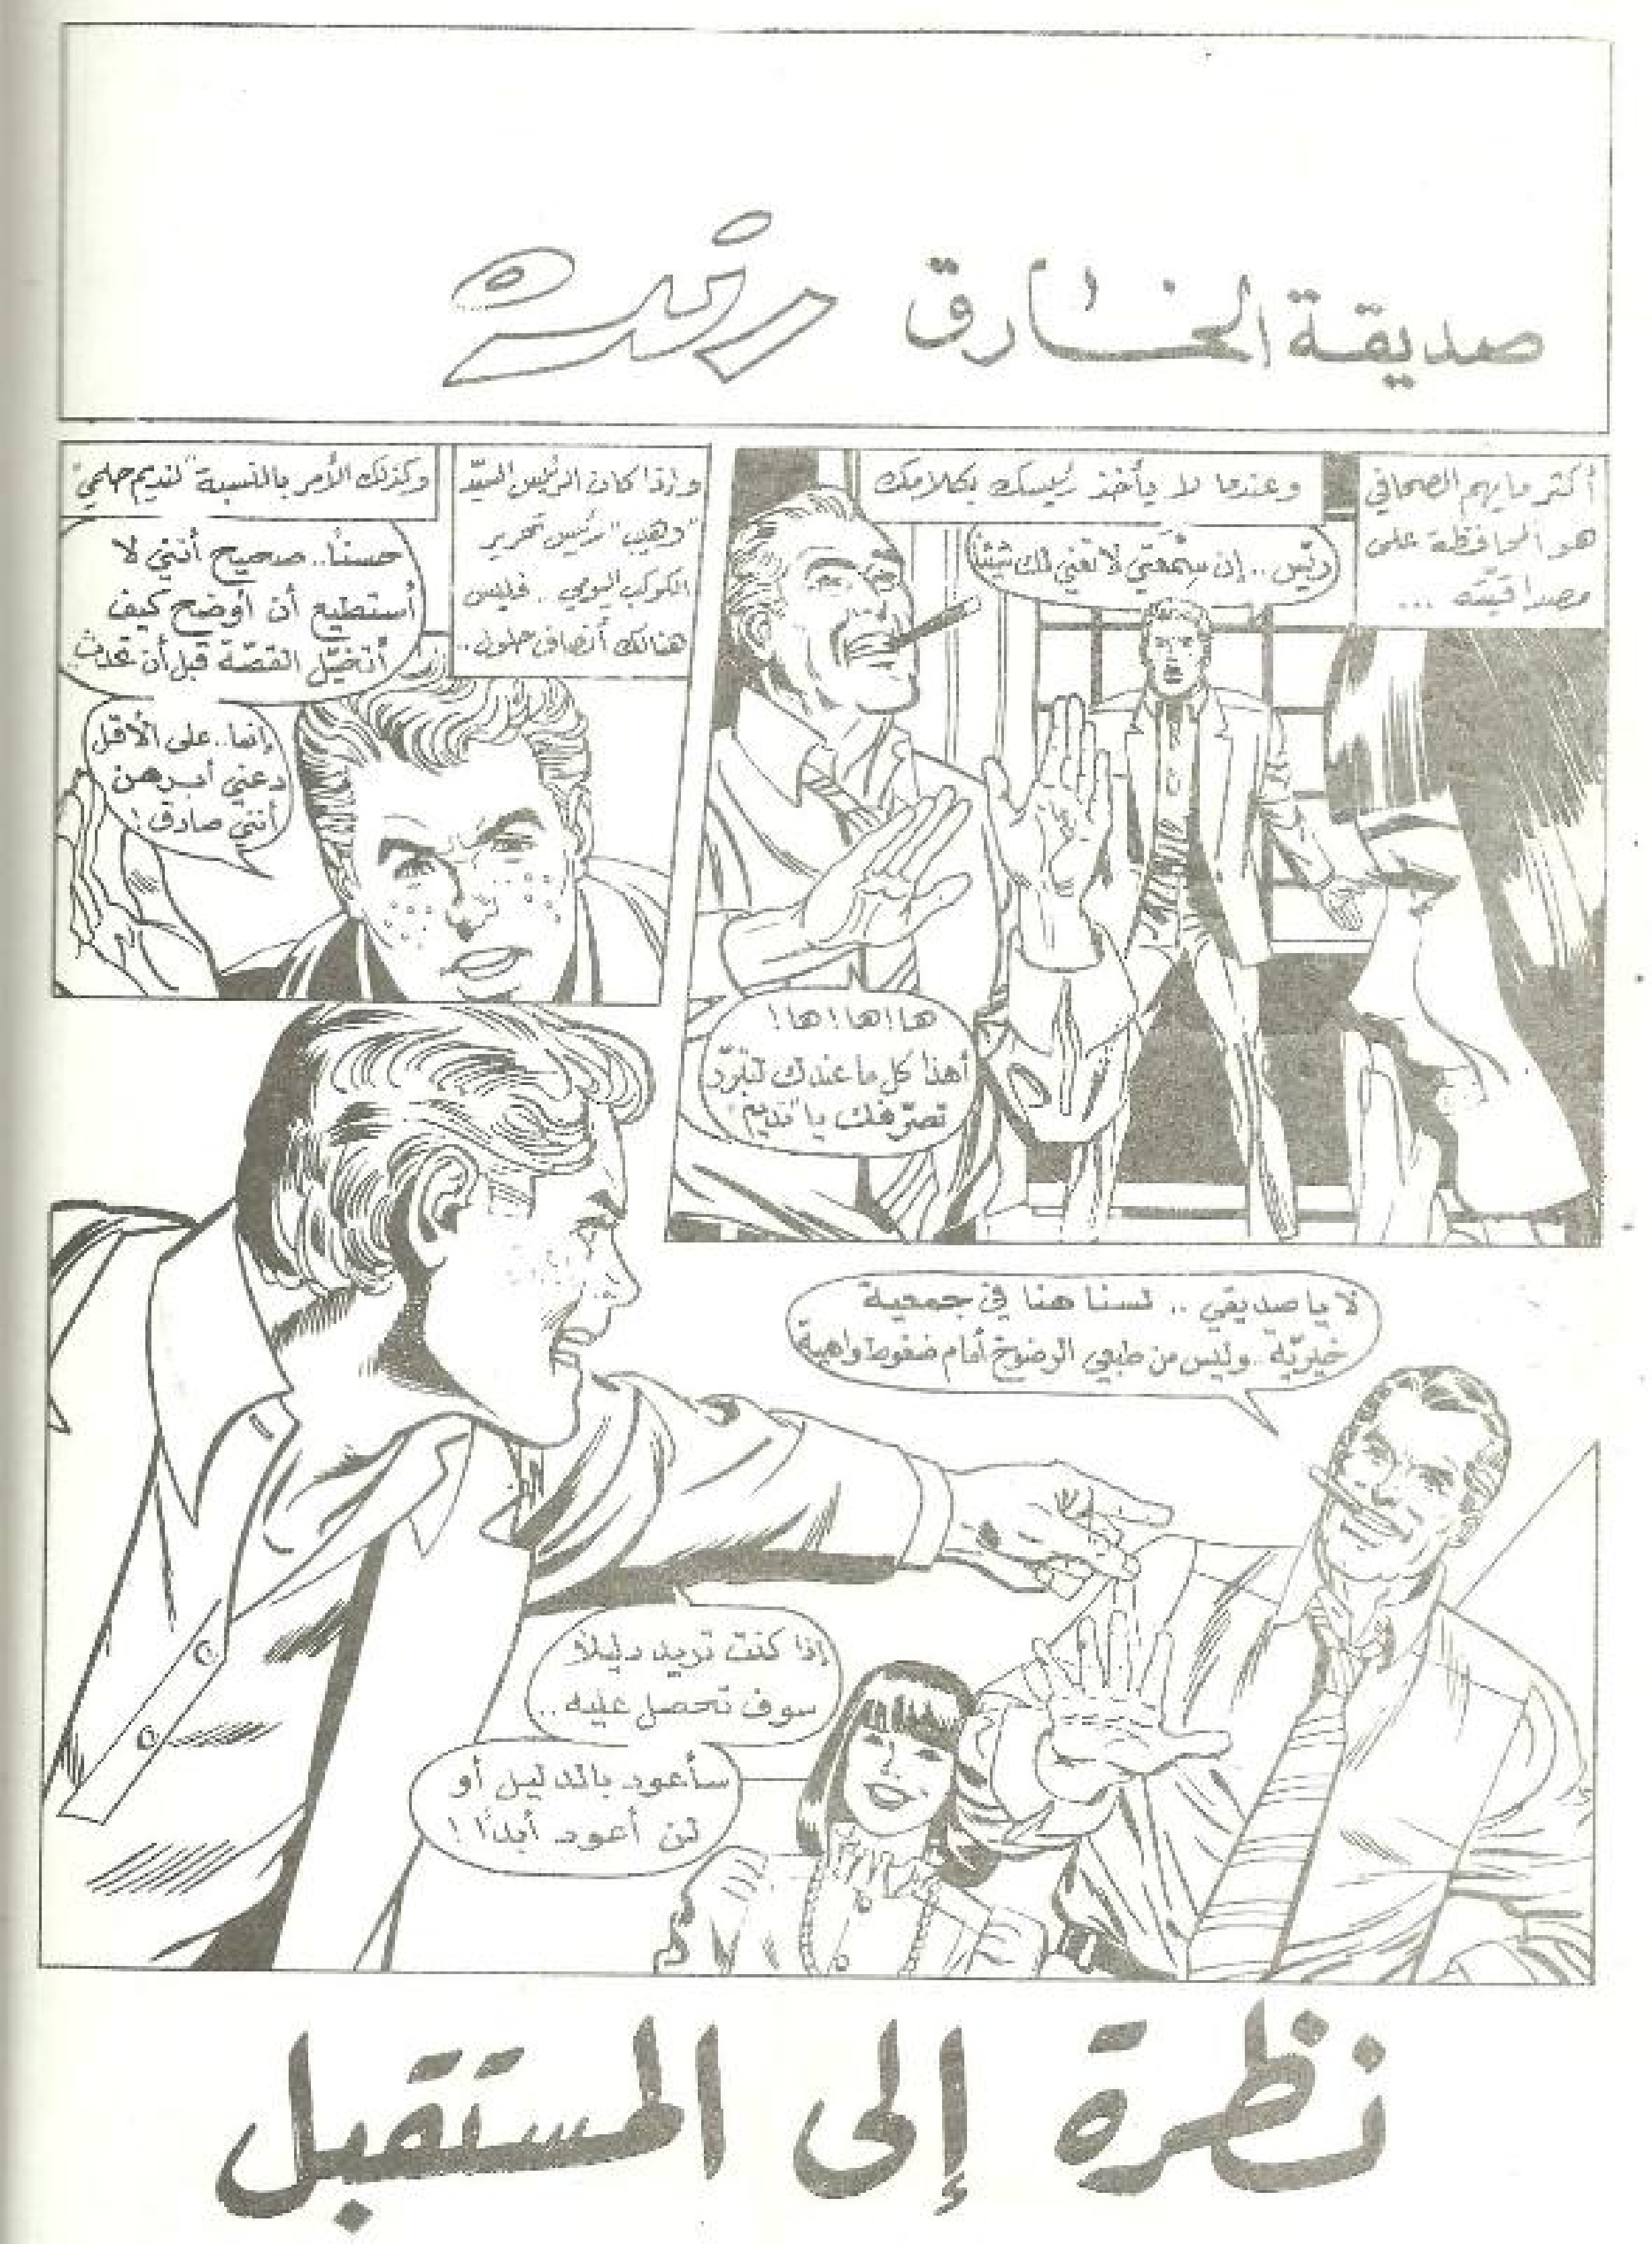 صديقة الخارق رندة
أكثر ما يهم الصحافي
هو المحافظة على
مصداقيته ...
وعندما لا يأخذ رئيسك بكلامك
ريّس .. إن سمعتي لا تعني لك شيئاً
ها! ها! ها!
أهذا كل ما عندك لتبرّر
تصرّفك يا "نديم"
وإذا كان الرئيس السيّد
"وهيب" رئيس تحرير
الكوكب اليومي .. فليس
هنالك أنصاف حلول ..
وكذلك الأمر بالنسبة "لنديم حلمي"
حسناً.. صحيح أنني لا
أستطيع أن أوضح كيف
أتخيّل القصّة قبل أن تحدث
إنما.. على الأقل
دعني أبرهن
أنني صادق!
لا يا صديقي .. لسنا هنا في جمعية
خيريّة .. وليس من طبعي الرضوخ أمام ضغوط واهية
إذا كنت تريد دليلاً
سوف تحصل عليه ..
سأعود بالدليل أو
لن أعود أبداً!
نظرة إلى المستقبل